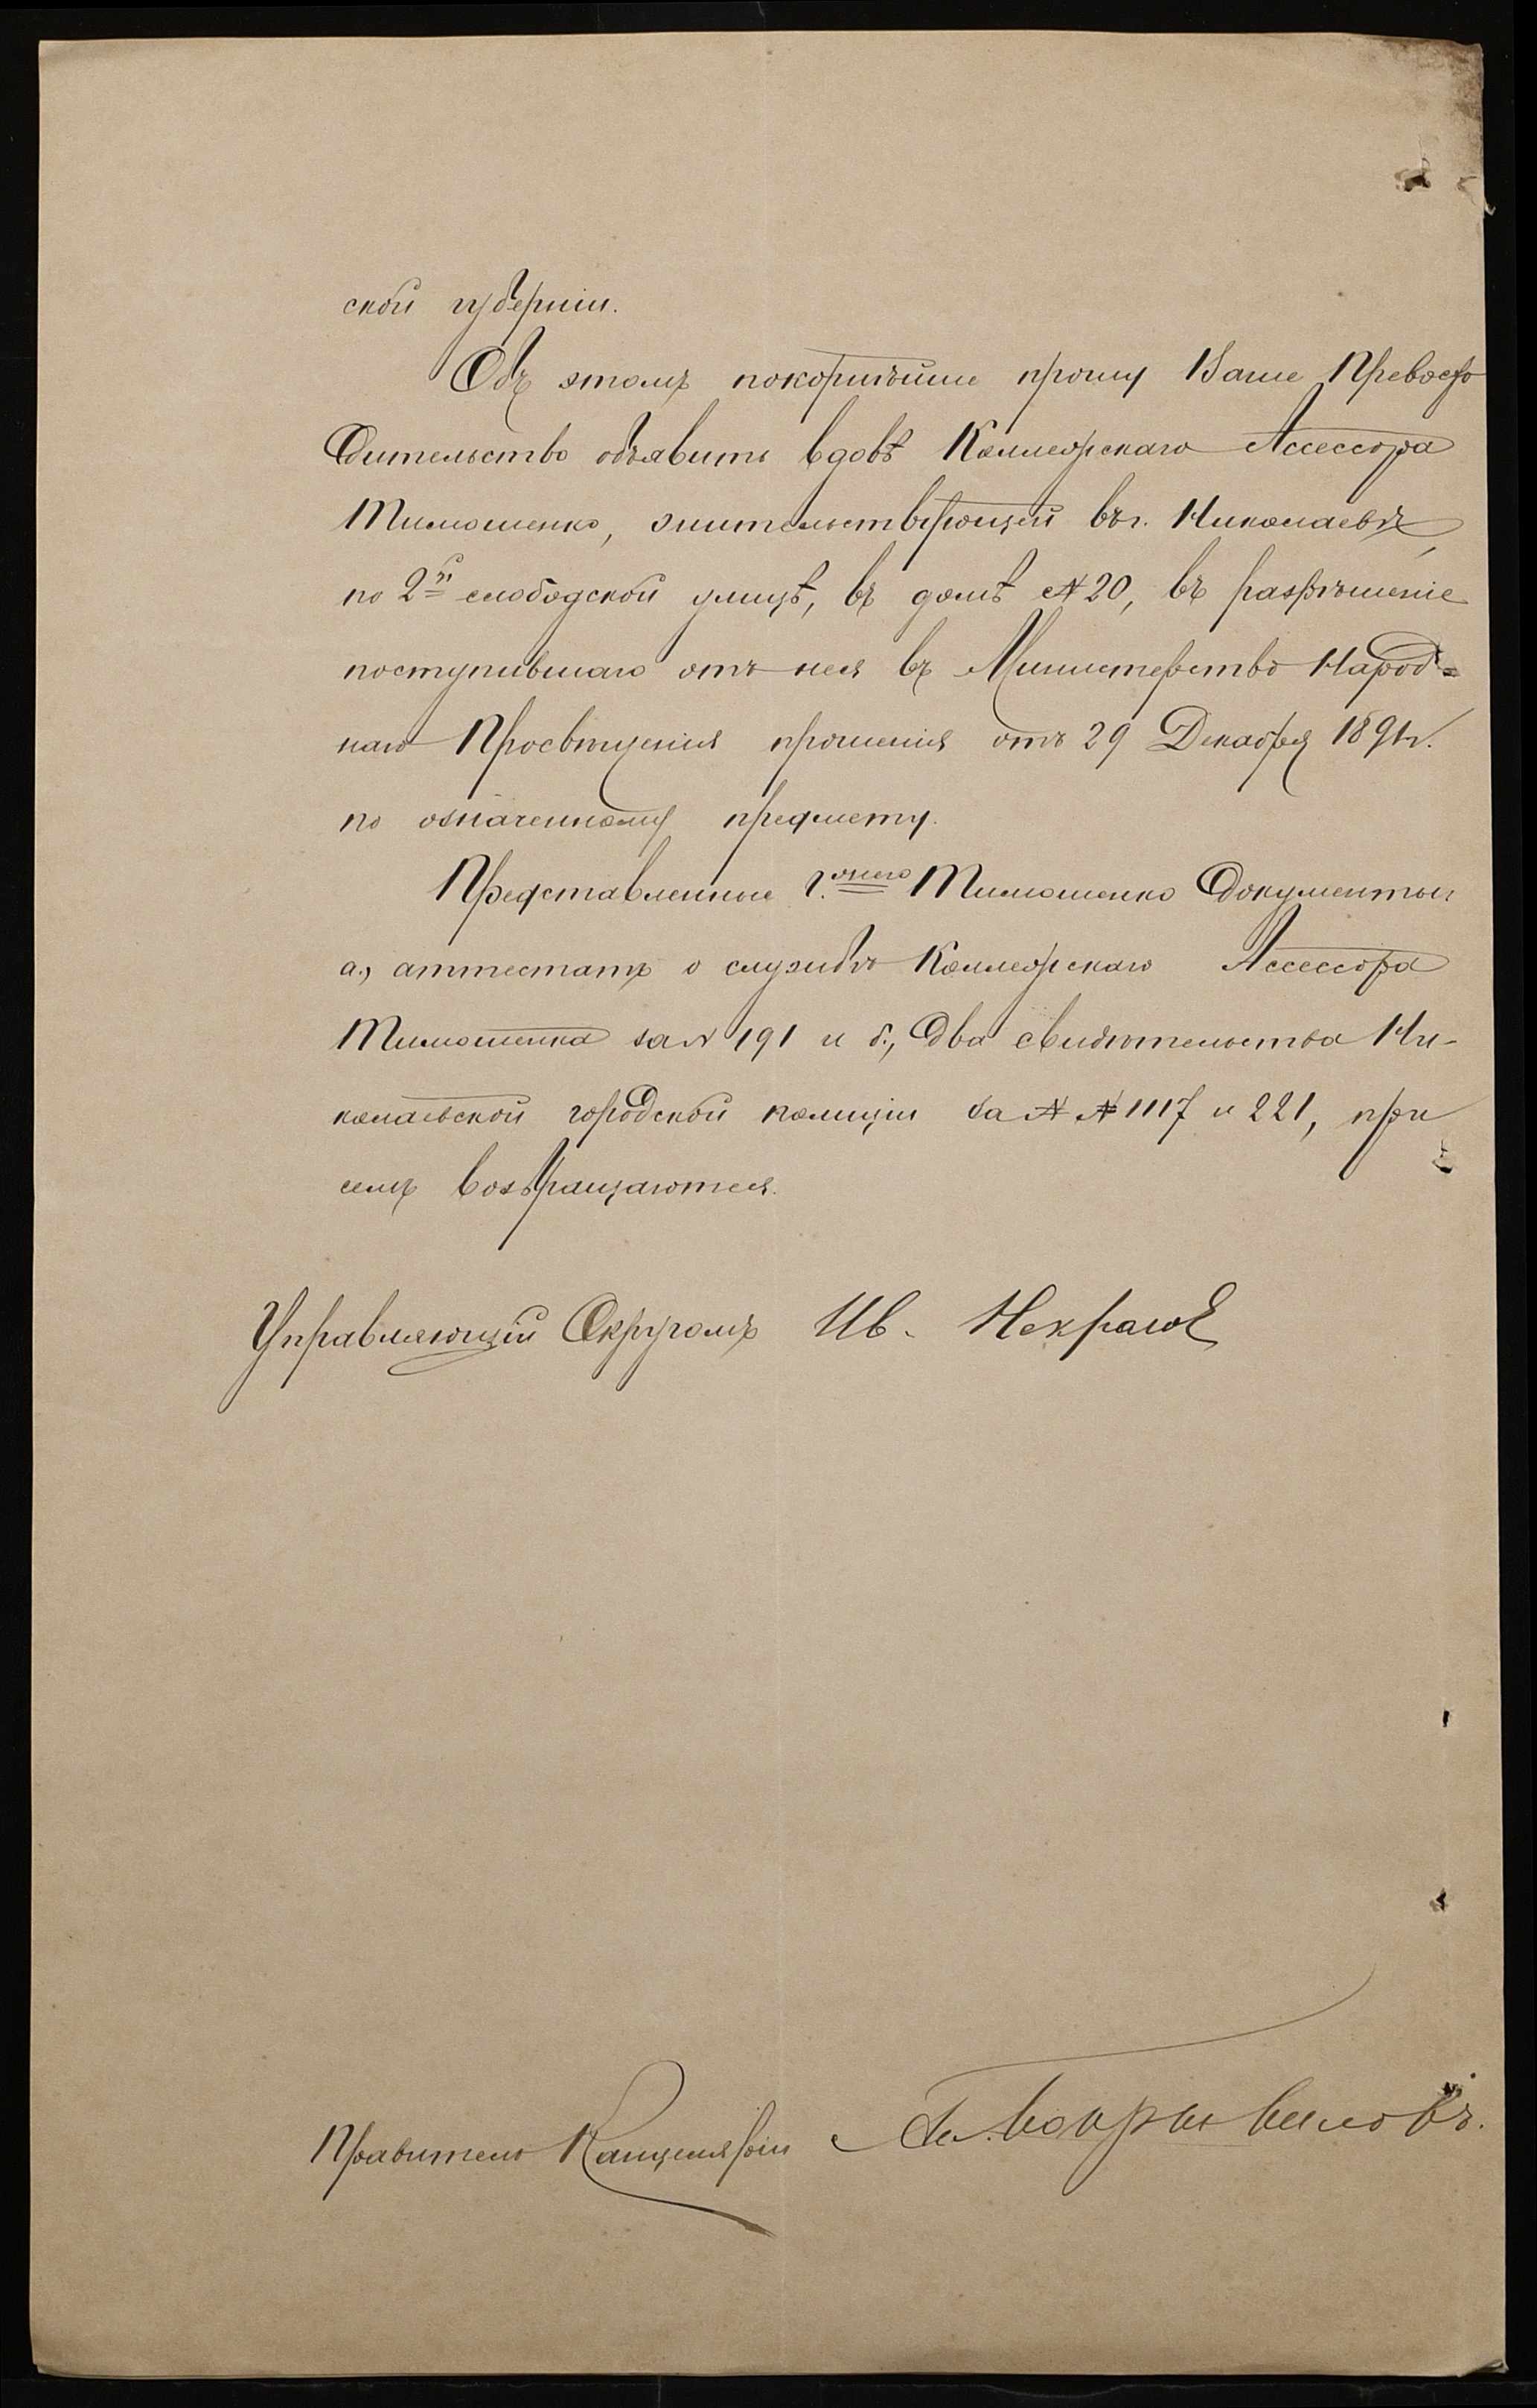 ской губерніи.
Объ этомъ покорнѣйше прошу Ваше Превосхо
дительство объявить вдовѣ Коллежскаго Ассессора
Тимошенко, жительствующей въ г. Николаевѣ,
по 2й слободской улицѣ, въ домѣ № 20, въ разрѣшеніе
поступившаго отъ нея въ Министерство Народ=
наго Просвѣщенія прошенія отъ 29 Декабря 1891 г.
по означенному предмету.
Представленные г.жею Тимошенко документы:
а., аттестатъ о службѣ Коллежскаго Ассессора
Тимошенка за № 191 и б., два свидѣтельства Ни-
колаевской городской полиціи за №№ 1117 и 221, при
семъ возвращаются.
Управляющій Округомъ Ив. Некрасов
Правитель Канцеляріи